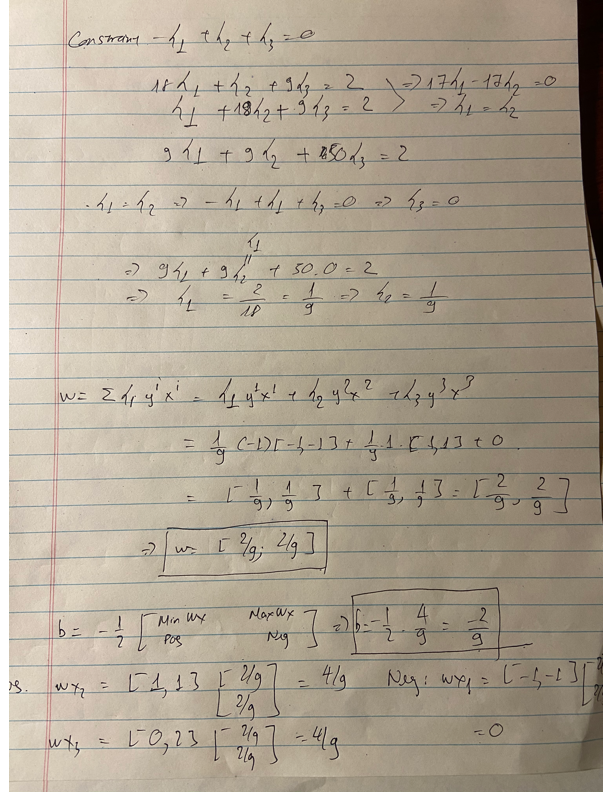 Constraint -λ1 + λ2 + λ3 = 0
18λ1 + λ2 + 9λ3 = 2 ⟩ ⇒ 17λ1 - 17λ2 = 0
λ1 + 18λ2 + 9λ3 = 2 ⇒ λ1 = λ2
9λ1 + 9λ2 + 50λ3 = 2
λ1 = λ2 ⇒ -λ1 + λ1 + λ3 = 0 ⇒ λ3 = 0
λ1
⇒ 9λ1 + 9λ2 + 50.0 = 2
⇒ λ1 = 2/18 = 1/9 ⇒ λ2 = 1/9
w = Σ λi y^i x^i = λ1 y^1 x^1 + λ2 y^2 x^2 + λ3 y^3 x^3
= 1/9 (-1)[-1,-1] + 1/9 . 1 . [1,1] + 0
= [1/9, 1/9] + [1/9, 1/9] = [2/9, 2/9]
⇒ w = [2/9; 2/9]
b = -1/2 [Min wx Pos Max wx Neg] ⇒ b = -1/2 . 4/9 = -2/9
wx2 = [1,1] [2/9 2/9] = 4/9 Neg: wx1 = [-1,-1] [
wx3 = [0,2] [2/9 2/9] = 4/9 = 0